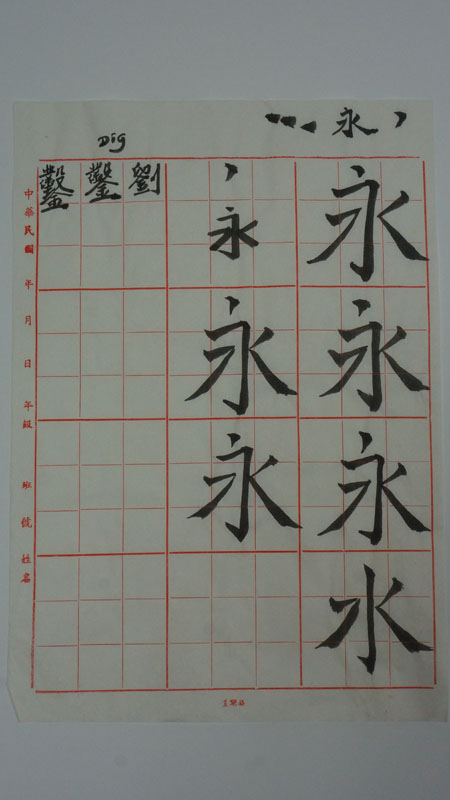 永
永永永水
永永永
Dig
劉
鑿
鑿
中華民國 年 月 日 年級 班 號 姓名